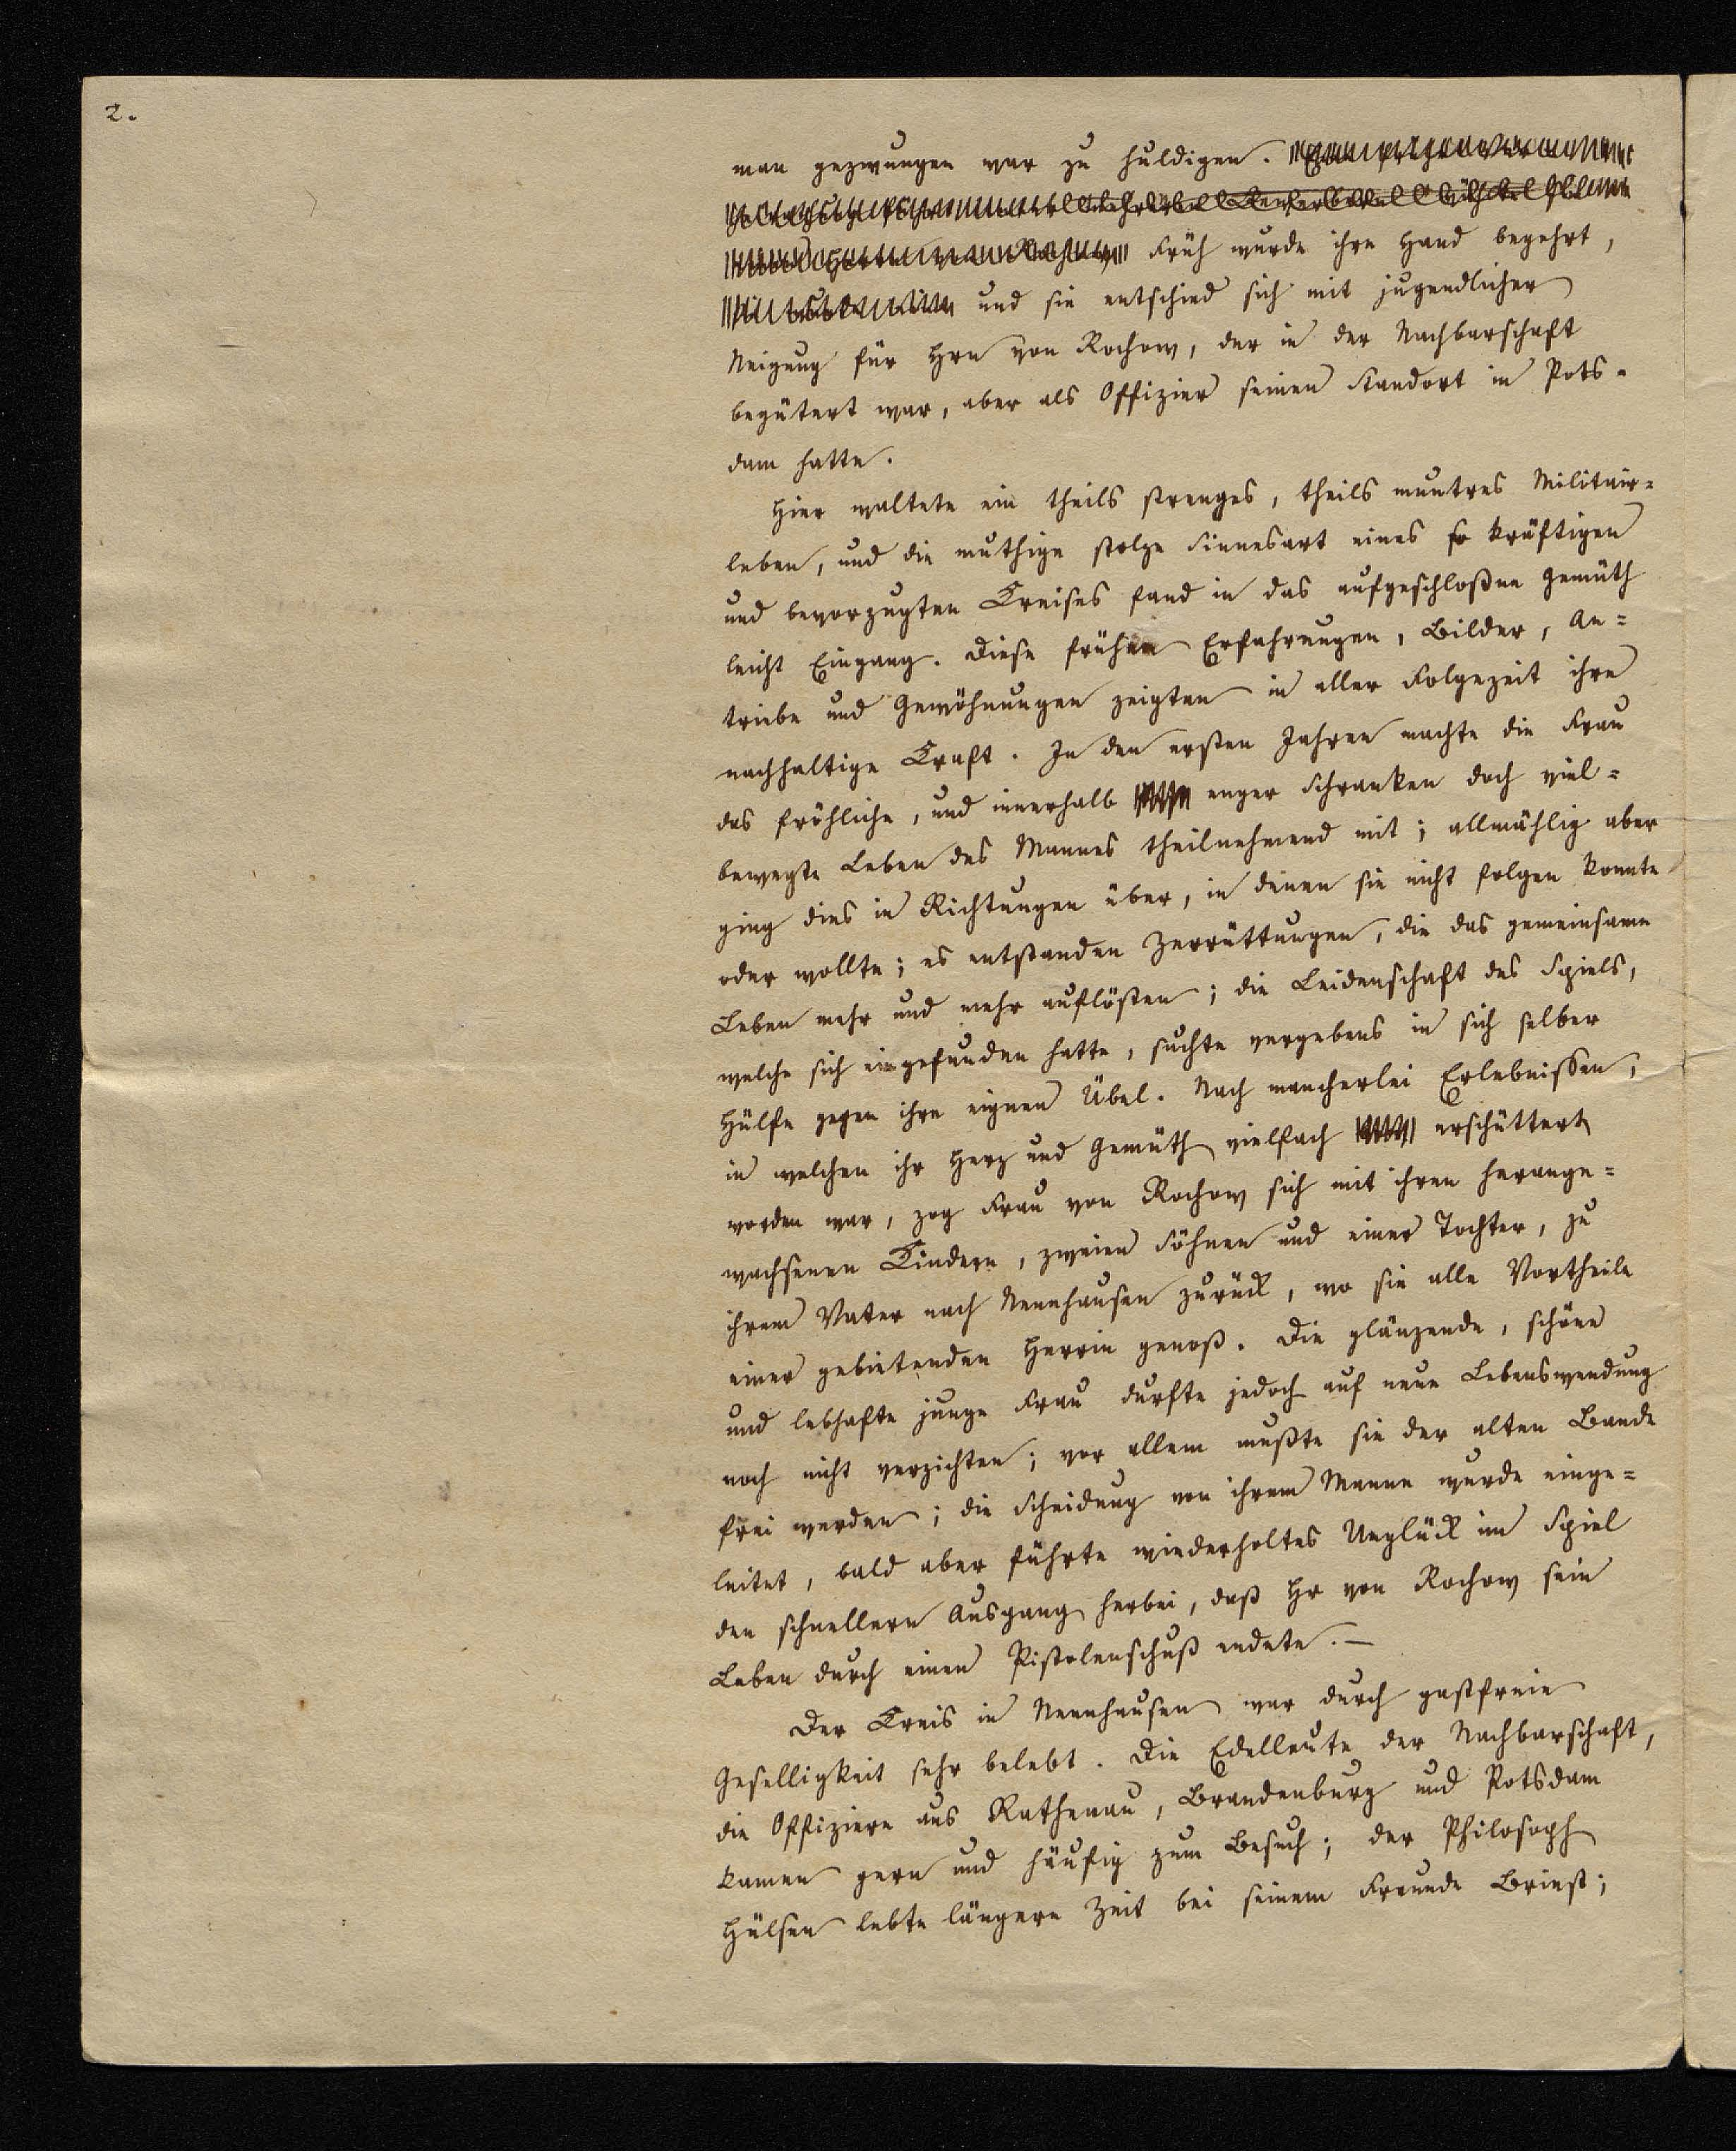 2.
man gezwungen war zu huldigen.
Früh wurde ihre Hand begehrt,
und sie entschied sich mit jugendlicher
Neigung für Hrn von Rochow, der in der Nachbarschaft
begütert war, aber als Offizier seinen Standort in Pots-
dam hatte.
Hier waltete ein theils strenges, theils muntres Militair-
leben, und die muthige stolze Sinnesart eines so kräftigen
und bevorzugten Kreises fand in das aufgeschloßne Gemüth
leicht Eingang. Diese frühen Erfahrungen, Bilder, An-
triebe und Gewöhnungen zeigten in aller Folgezeit ihre
nachhaltige Kraft. In den ersten Jahren machte die Frau
das fröhliche, und innerhalb enger Schranken doch viel-
bewegte Leben des Mannes theilnehmend mit; allmählig aber
ging dies in Richtungen über, in denen sie nicht folgen konnte
oder wollte; es entstanden Zerrüttungen, die das gemeinsame
Leben mehr und mehr auflösten; die Leidenschaft des Spiels,
welche sich eingefunden hatte, suchte vergebens in sich selber
Hülfe gegen ihre eignen Übel. Nach mancherlei Erlebnissen,
in welchen ihr Herz und Gemüth vielfach erschüttert
worden war, zog Frau von Rochow sich mit ihren herange-
wachsenen Kindern, zweien Söhnen und einer Tochter, zu
ihrem Vater nach Nennhausen zurück, wo sie alle Vortheile
einer gebietenden Herrin genoß. Die glänzende, schöne
und lebhafte junge Frau durfte jedoch auf neue Lebenswendung
noch nicht verzichten; vor allem mußte sie der alten Bande
frei werden; die Scheidung von ihrem Manne wurde einge-
leitet, bald aber führte wiederholtes Unglück im Spiel
den schnellern Ausgang herbei, daß Hr von Rochow sein
Leben durch einen Pistolenschuß endete. —
Der Kreis in Nennhausen war durch gastfreie
Geselligkeit sehr belebt. Die Edelleute der Nachbarschaft,
die Offiziere aus Rathenau, Brandenburg und Potsdam
kamen gern und häufig zum Besuch; der Philosoph
Hülsen lebte längere Zeit bei seinem Freunde Briest;